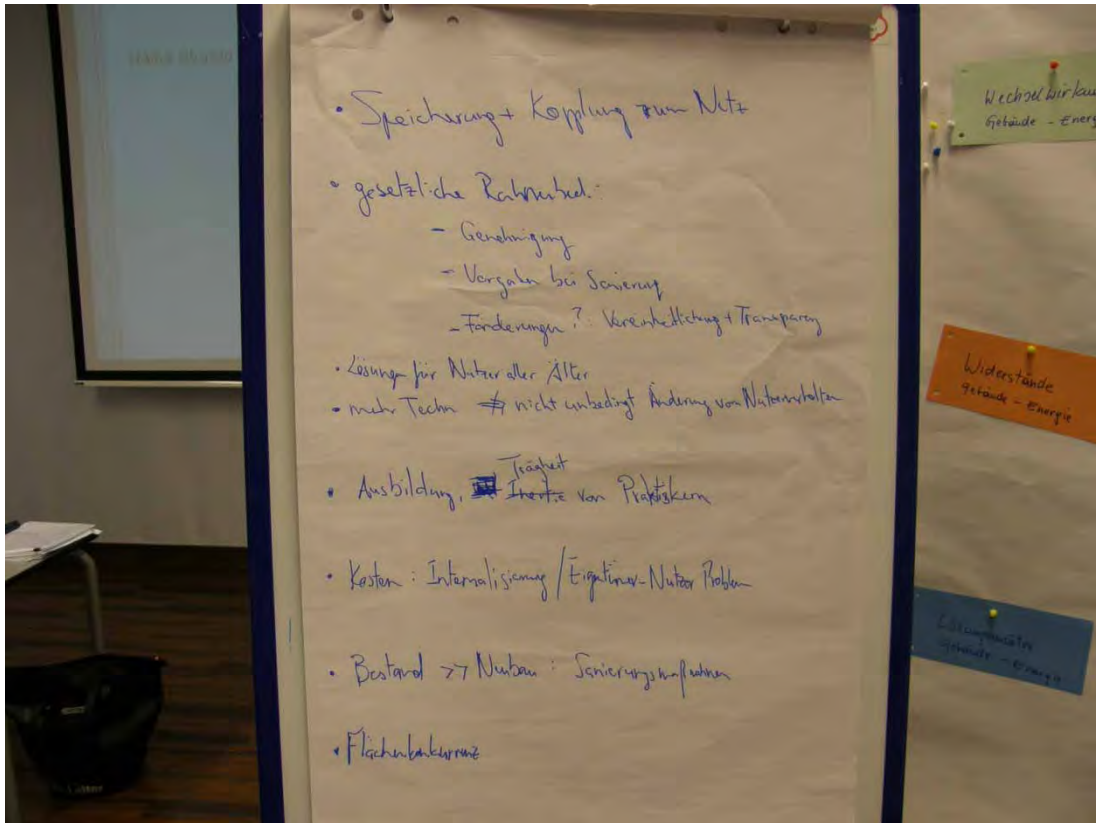 • Speicherung + Kopplung zum Netz
• gesetzliche Rahmenbed.:
- Genehmigung
- Vorgaben bei Sanierung
- Förderungen ?: Vereinheitlichung + Transparenz
• Lösungen für Nutzer aller Älter
• mehr Techn ≠ nicht unbedingt Änderung von Nutzerverhalten
Trägheit
• Ausbildung, Inertie von Praktikern
• Kosten : Internalisierung / Eigentümer-Nutzer Problem
• Bestand >> Neubau : Sanierungsmaßnahmen
• Flächenkonkurrenz
Wechselwirkun
Gebäude - Energ
Widerstände
Gebäude - Energie
Gebäude - Energie